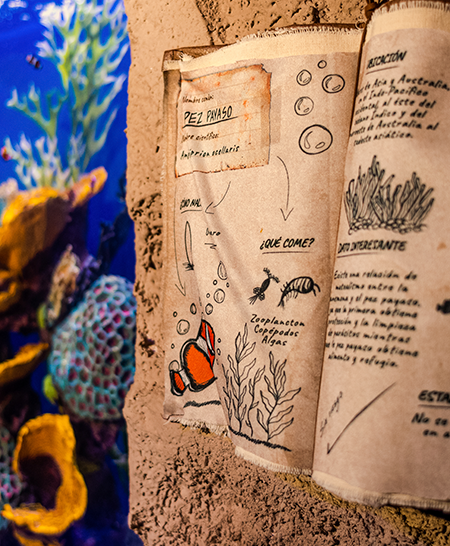 Nombre común:
PEZ PAYASO
Nombre científico:
Amphiprion ocellaris
¿QUÉ COME?
Zooplancton
Copépodos
Algas
UBICACIÓN
de Asia y Australia,
el Indo-Pacífico
al este del
Índico y del
de Australia al
asiático.
DATO INTERESANTE
Existe una relación de
mutualismo entre la
y el pez payaso.
la primera obtiene
protección y la limpieza
parásitos mientras
pez payaso obtiene
alimento y refugio.
ESTA
No se
en a